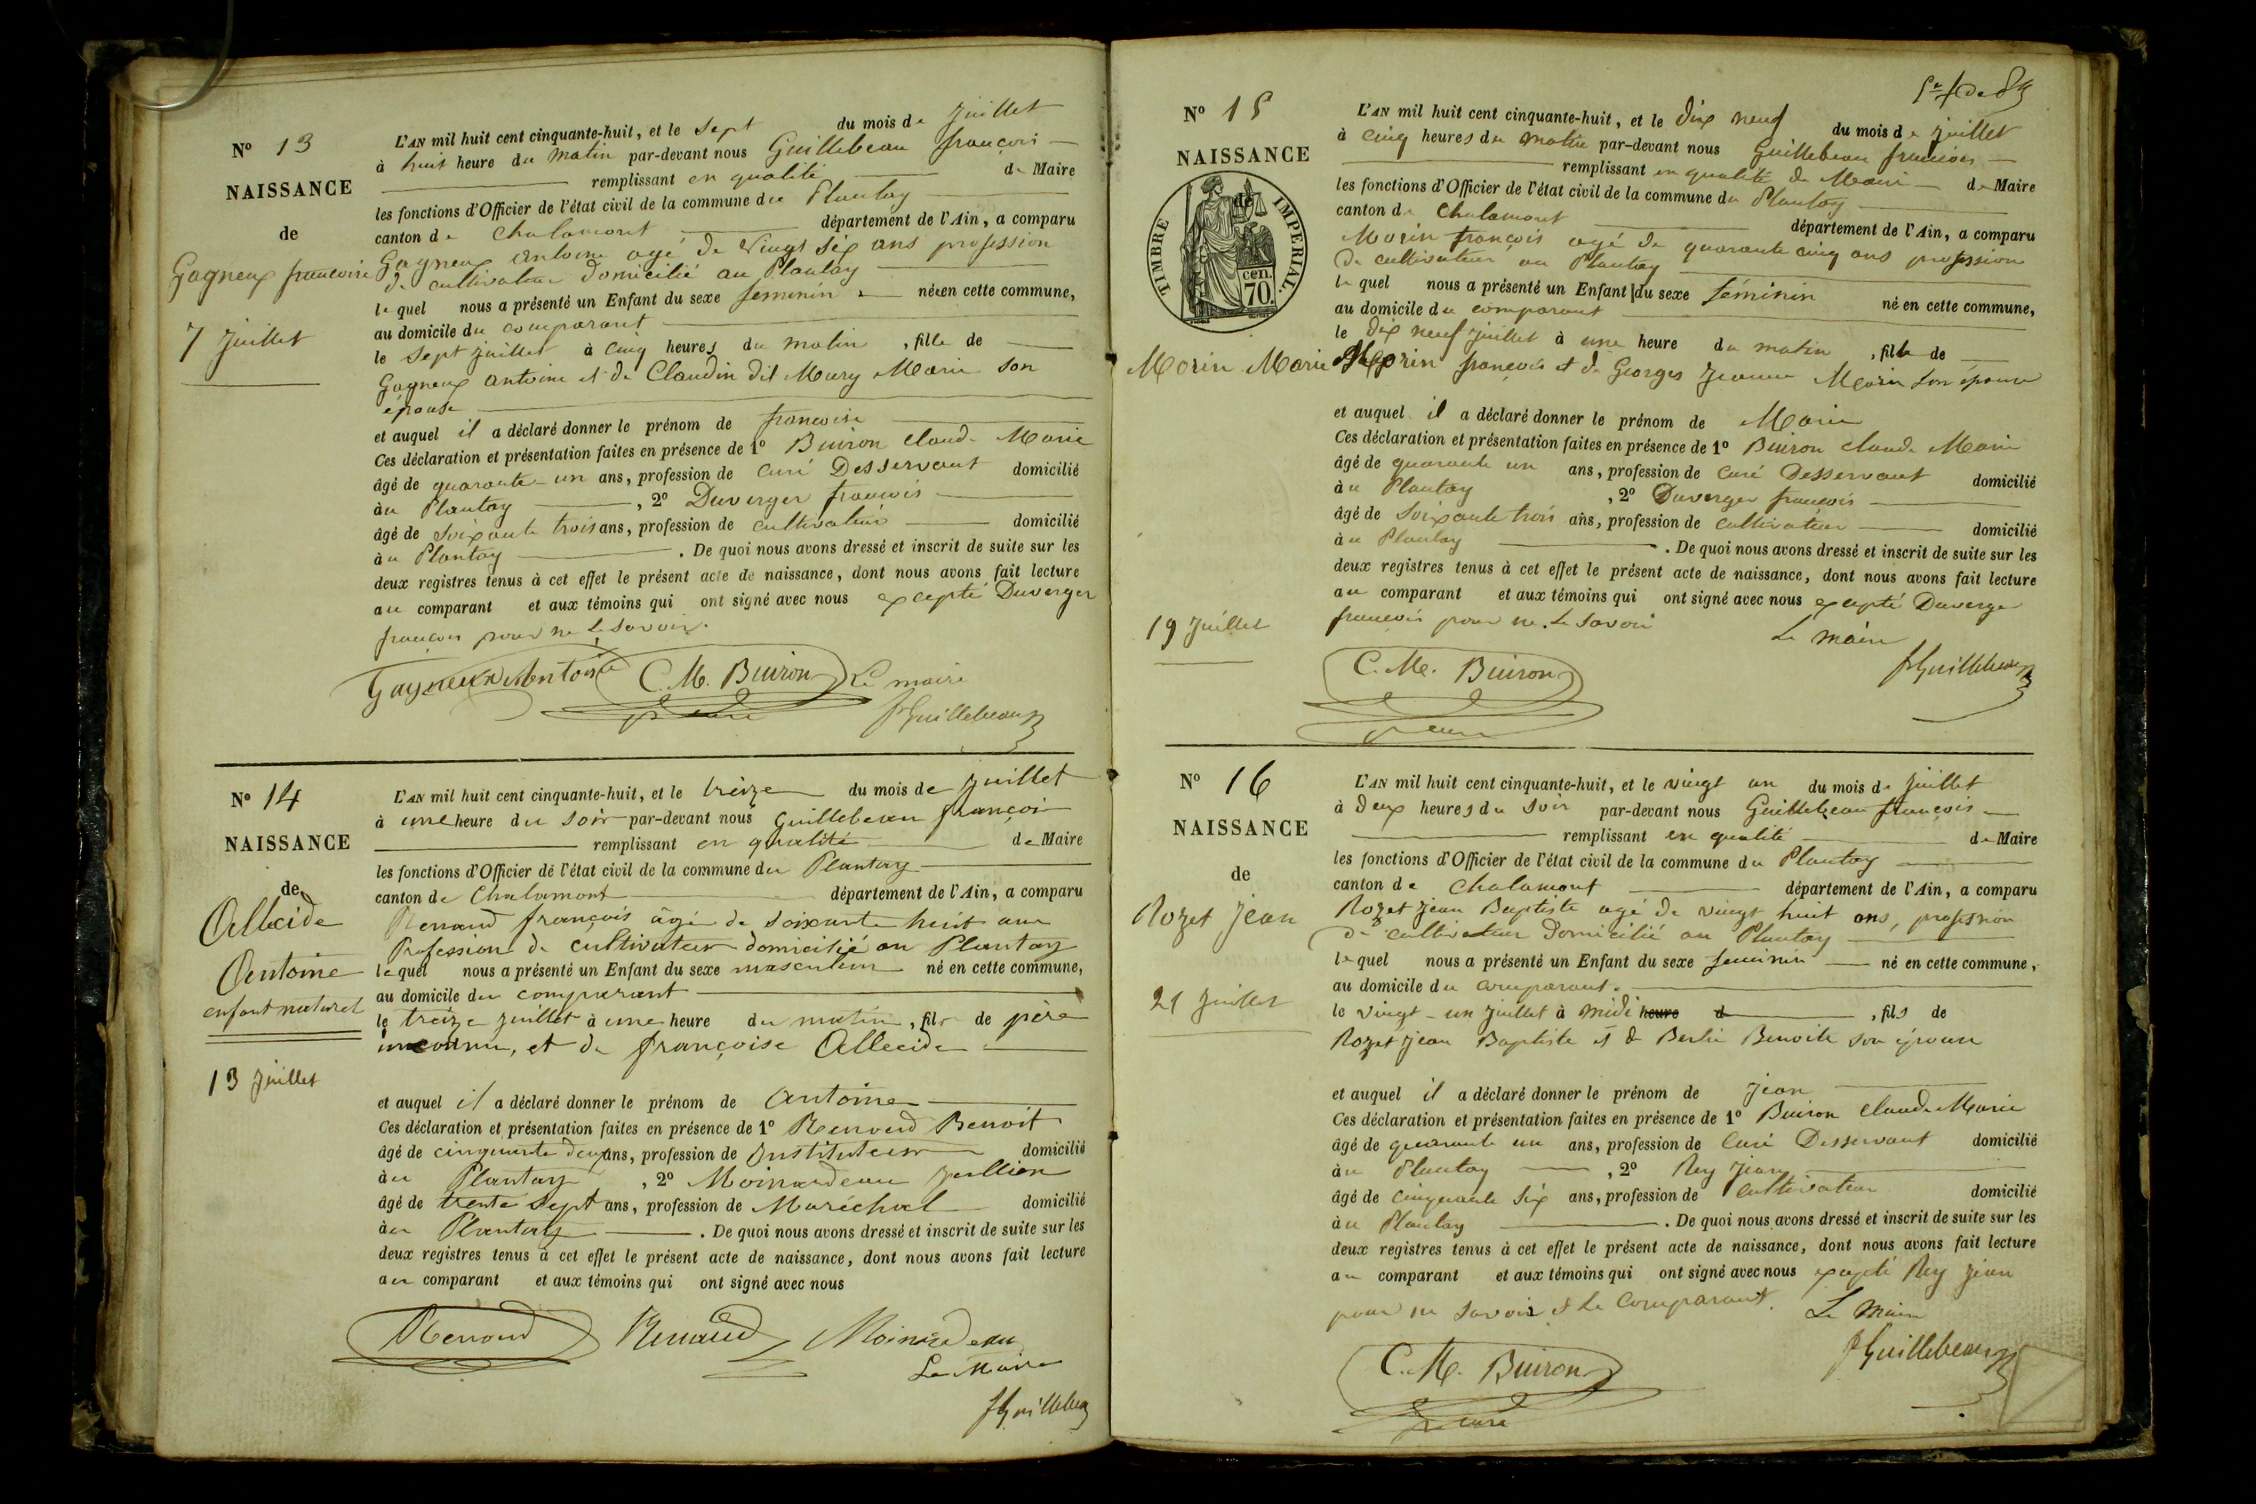 N° 13
NAISSANCE
de
Gagneux francoise
7 juillet
L'AN mil huit cent cinquante-huit, et le sept du mois de juillet
à huit heure du matin par-devant nous Guillebeau françois
remplissant en qualité de Maire
les fonctions d'Officier de l'état civil de la commune du Plantay
canton de Chalamont département de l'Ain, a comparu
Gagneux antoine agé de Vingt six ans profession
de cultivateur domicilié au Plantay
lequel nous a présenté un Enfant du sexe feminin née en cette commune,
au domicile du comparant
le sept juillet à cinq heures du matin, fille de
Gagneux antoine et de Claudin dit Mury Marie son
épouse
et auquel il a déclaré donner le prénom de francoise
Ces déclaration et présentation faites en présence de 1° Buiron claude Marie
âgé de quarante-un ans, profession de curé Desservant domicilié
au Plantay, 2° Duverger francois
âgé de soixante trois ans, profession de cultivateur domicilié
au Plantay. De quoi nous avons dressé et inscrit de suite sur les
deux registres tenus à cet effet le présent acte de naissance, dont nous avons fait lecture
au comparant et aux témoins qui ont signé avec nous excepté Duverger
françois pour ne le savoir.
Gagneux Antoine C. M. Buiron Le maire
curé fGuillebeau
N° 14
NAISSANCE
de
Allecide
Antoine
enfant naturel
13 juillet
L'AN mil huit cent cinquante-huit, et le treize du mois de juillet
à une heure du soir par-devant nous Guillebeau françois
remplissant en qualité de Maire
les fonctions d'Officier de l'état civil de la commune du Plantay
canton de Chalamont département de l'Ain, a comparu
Renaud françois âgé de soixante huit ans
Profession de cultivateur domicilié au Plantay
lequel nous a présenté un Enfant du sexe masculin né en cette commune,
au domicile du comparant
le treize juillet à une heure du matin, fils de père
inconnu, et de françoise Allecide
et auquel il a déclaré donner le prénom de antoine
Ces déclaration et présentation faites en présence de 1° Renaud Benoit
âgé de cinquante deux ans, profession de Instituteur domicilié
au Plantay, 2° Moinardeau jullien
âgé de trente sept ans, profession de Maréchal domicilié
au Plantay. De quoi nous avons dressé et inscrit de suite sur les
deux registres tenus à cet effet le présent acte de naissance, dont nous avons fait lecture
au comparant et aux témoins qui ont signé avec nous
Renaud Renaud Moinardeau
Le Maire
fGuillebeau
N° 15
NAISSANCE
de
TIMBRE IMPERIAL.
70. cen.
Morin Marie
19 juillet
L'AN mil huit cent cinquante-huit, et le dix neuf du mois de juillet
à cinq heures du matin par-devant nous Guillebeau francois
remplissant en qualité de Maire de Maire
les fonctions d'Officier de l'état civil de la commune du Plantay
canton de Chalamont département de l'Ain, a comparu
Morin françois agé de quarante cinq ans profession
de cultivateur au Plantay
lequel nous a présenté un Enfant du sexe féminin né en cette commune,
au domicile du comparant
le dix neuf juillet à une heure du matin, fille de
Morin françois et de Georges jeanne Marie son épouse
et auquel il a déclaré donner le prénom de Marie
Ces déclaration et présentation faites en présence de 1° Buiron claude Marie
âgé de quarante un ans, profession de curé Desservant domicilié
au Plantay, 2° Duverger francois
âgé de soixante trois ans, profession de cultivateur domicilié
au Plantay. De quoi nous avons dressé et inscrit de suite sur les
deux registres tenus à cet effet le présent acte de naissance, dont nous avons fait lecture
au comparant et aux témoins qui ont signé avec nous excepté Duverger
francois pour ne le savoir
Le maire
C. M. Buiron fGuillebeau
curé
N° 16
NAISSANCE
de
Rozet jean
21 juillet
L'AN mil huit cent cinquante-huit, et le vingt un du mois de juillet
à deux heures du soir par-devant nous Guillebeau françois
remplissant en qualité de Maire
les fonctions d'Officier de l'état civil de la commune du Plantay
canton de Chalamont département de l'Ain, a comparu
Rozet jean Baptiste agé de vingt huit ans, profession
de cultivateur domicilié au Plantay
lequel nous a présenté un Enfant du sexe feminin né en cette commune,
au domicile du comparant.
le vingt-un juillet à midi heure d, fils de
Rozet jean Baptiste et de Berlie Benoite son épouse
et auquel il a déclaré donner le prénom de jean
Ces déclaration et présentation faites en présence de 1° Buiron claude Marie
âgé de quarante un ans, profession de curé Desservant domicilié
au Plantay, 2° Rey jean
âgé de cinquante six ans, profession de cultivateur domicilié
au Plantay. De quoi nous avons dressé et inscrit de suite sur les
deux registres tenus à cet effet le présent acte de naissance, dont nous avons fait lecture
au comparant et aux témoins qui ont signé avec nous excepté Rey jean
pour ne savoir et le comparant. Le Maire
C. M. Buiron fGuillebeau
curé